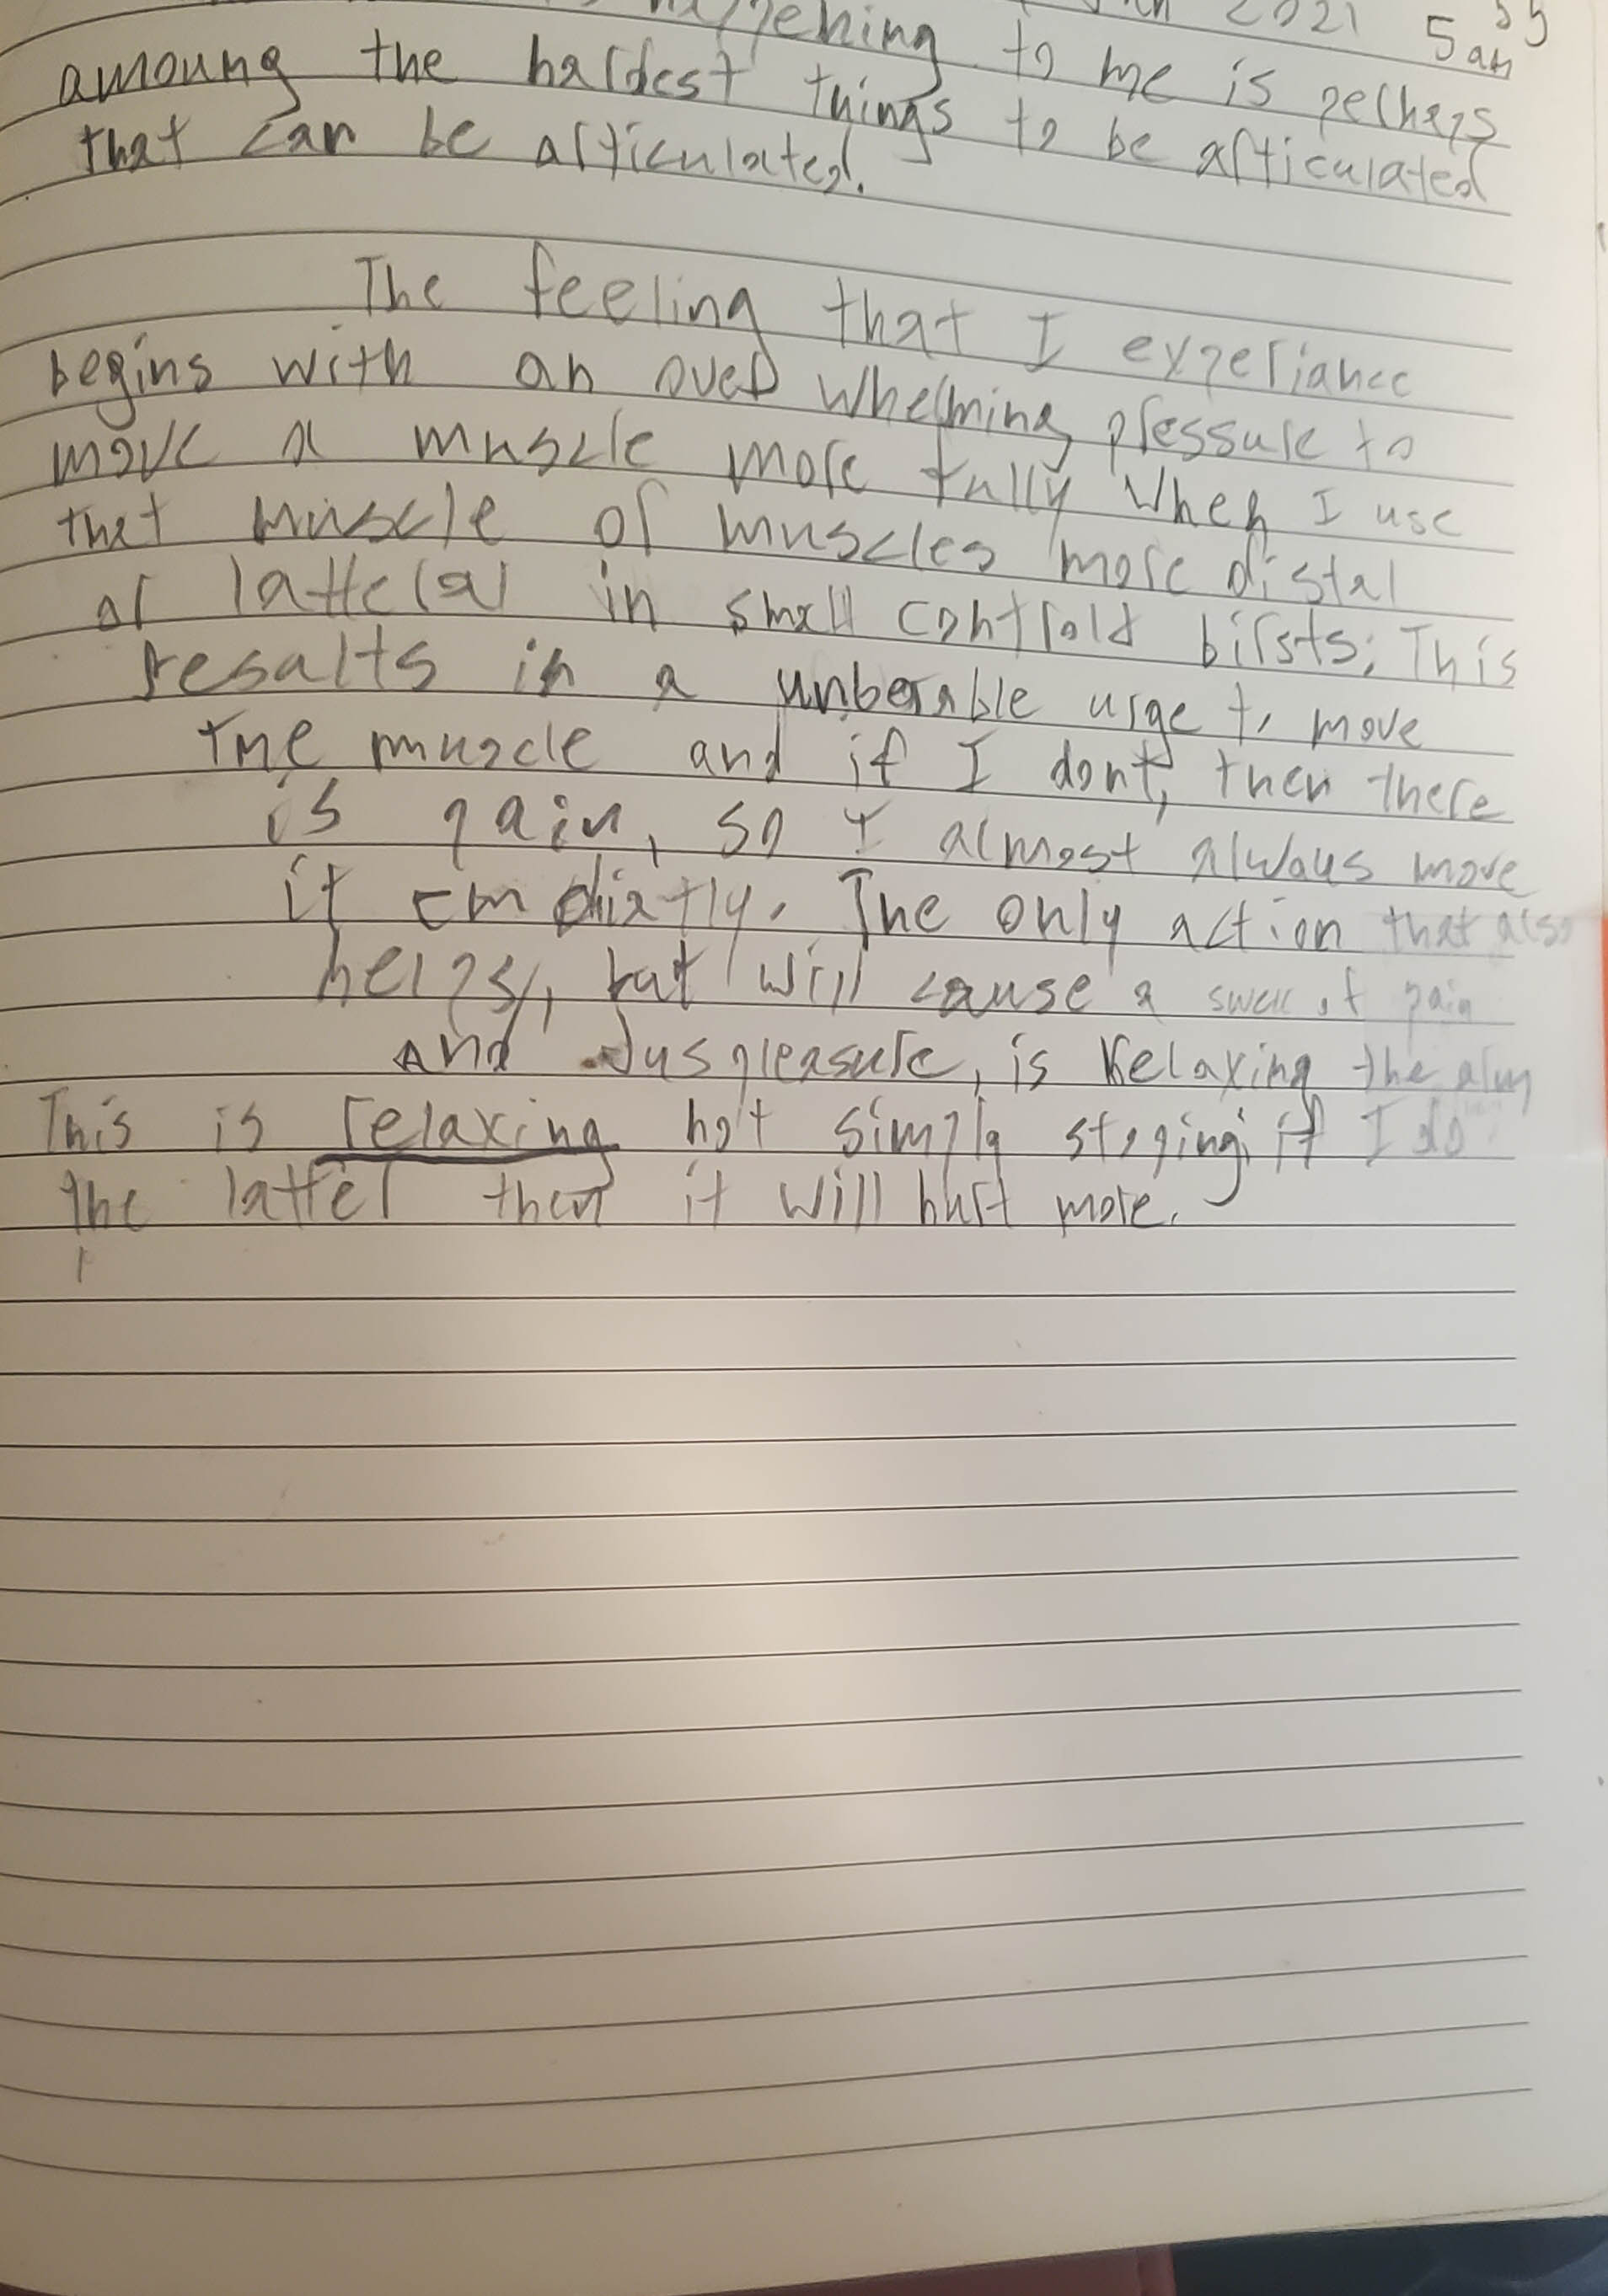 2021 5am
happening to me is perhaps
amoung the hardest things to be articulated
that can be articulated.
The feeling that I experiance
begins with an over whelming pressure to
move a muscle more fully when I use
that muscle or muscles more distal
or latteral in small controld birsts; This
results in a unberable urge to move
the muscle and if I dont, then there
is pain, so I almost always move
it emdiatly. The only action that also
helps, but will cause a swell of pain
and duspleasure, is relaxing the arm
This is relaxing not simply stoping; if I do
the latter then it will hurt more.